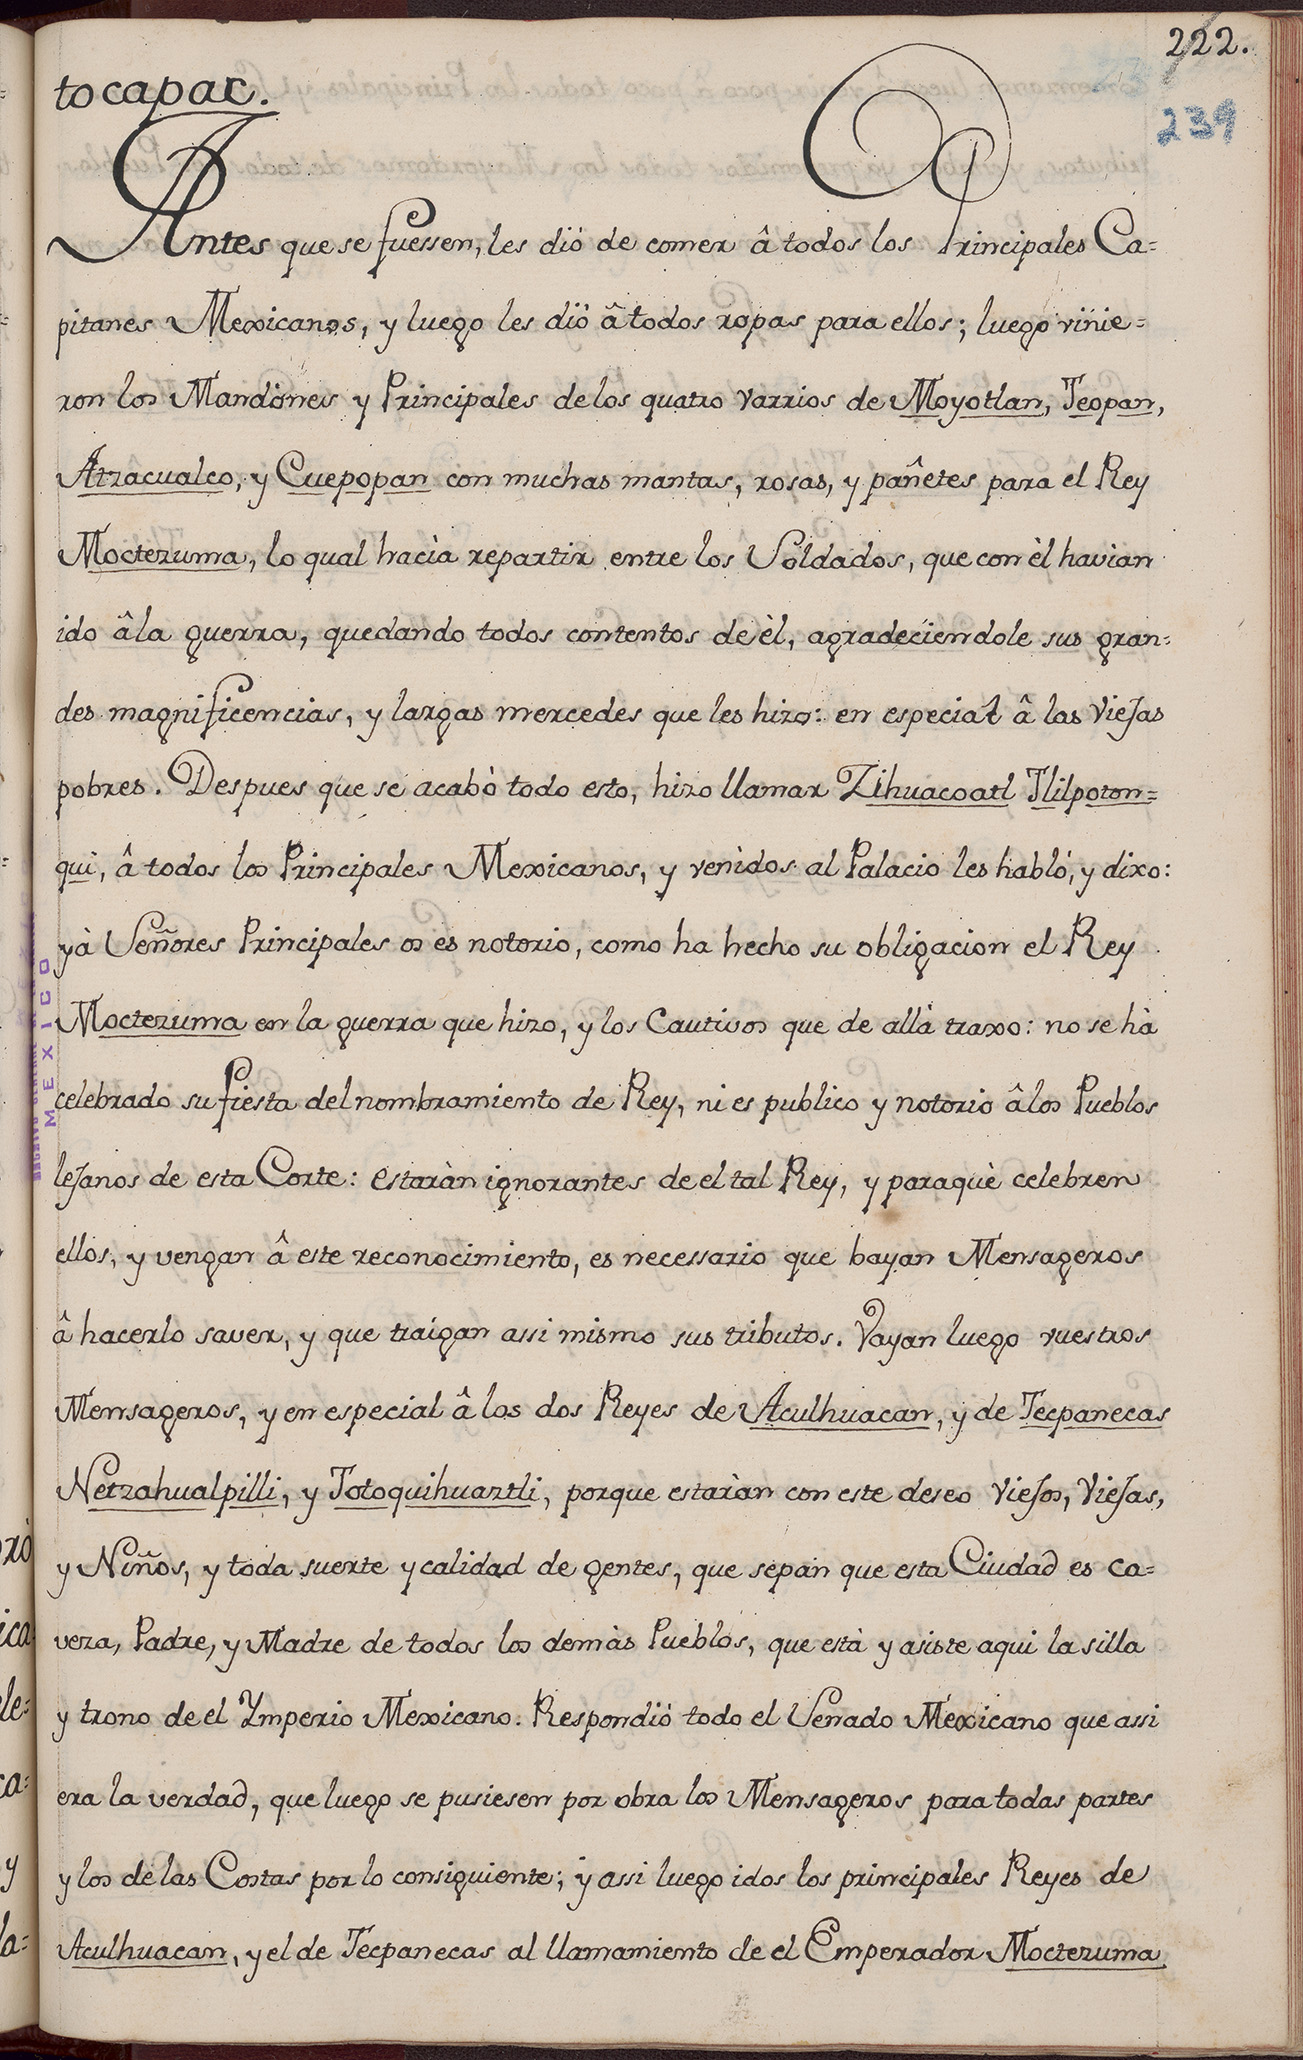 222.
239
tocapac.
Antes que se fuessen, les diò de comer â todos los Principales Ca=
pitanes Mexicanos, y luego les diò â todos ropas para ellos; luego vinie=
ron los Mandònes y Principales de los quatro varrios de Moyotlan, Teopan,
Atzacualco, y Cuepopan con muchas mantas, rosas, y pañetes para el Rey
Moctezuma, lo qual hacìa repartir entre los Soldados, que con èl havian
ido â la guerra, quedando todos contentos de èl, agradeciendole sus gran=
des magnificencias, y largas mercedes que les hizo: en especial â las viejas
pobres. Despues que se acabò todo esto, hizo llamar Zihuacoatl Tlilpoton=
qui, â todos los Principales Mexicanos, y venìdos al Palacio les hablò, y dixo:
yà Señores Principales os es notorio, como ha hecho su obligacion el Rey
Moctezuma en la guerra que hizo, y los Cautivos que de allà traxo: no se hà
celebrado su fiesta del nombramiento de Rey, ni es publico y notorio â los Pueblos
lejanos de esta Corte: estaràn ignorantes de el tal Rey, y paraquè celebren
ellos, y vengan â este reconocimiento, es necessario que bayan Mensageros
â hacerlo saver, y que traigan assi mismo sus tributos. Vayan luego vuestros
Mensageros, y en especial â los dos Reyes de Aculhuacan, y de Tecpanecas
Netzahualpilli, y Totoquihuaztli, porque estaràn con este deseo viejos, viejas,
y Niños, y toda suerte y calidad de gentes, que sepan que esta Ciudad es ca=
veza, Padre, y Madre de todos los demàs Pueblos, que està y asiste aqui la silla
y trono de el Ymperio Mexicano. Respondiò todo el Senado Mexicano que assi
era la verdad, que luego se pusiesen por obra los Mensageros para todas partes
y los de las Costas por lo consiguiente; y assi luego idos los principales Reyes de
Aculhuacan, y el de Tecpanecas al llamamiento de el Emperador Moctezuma
MEXICO